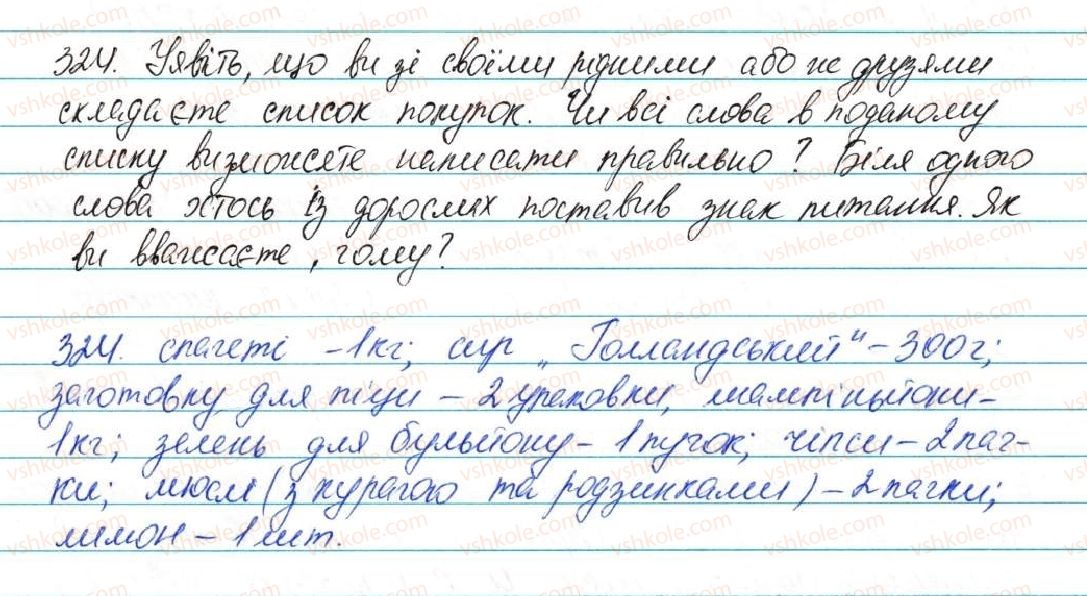 324. Уявіть, що ви зі своїми рідними або ж друзями
складаєте список покупок. Чи всі слова в поданому
списку ви зможете написати правильно? Біля одного
слова хтось із дорослих поставив знак питання. Як
ви вважаєте, чому?
324. спагеті - 1 кг; сир „Голландський" - 300 г;
заготовку для піци - 2 упаковки, шампіньйони -
1 кг; зелень для бульйону - 1 пучок; чіпси - 2 пач-
ки; мюслі (з курагою та родзинками) - 2 пачки;
лимон - 1 шт.